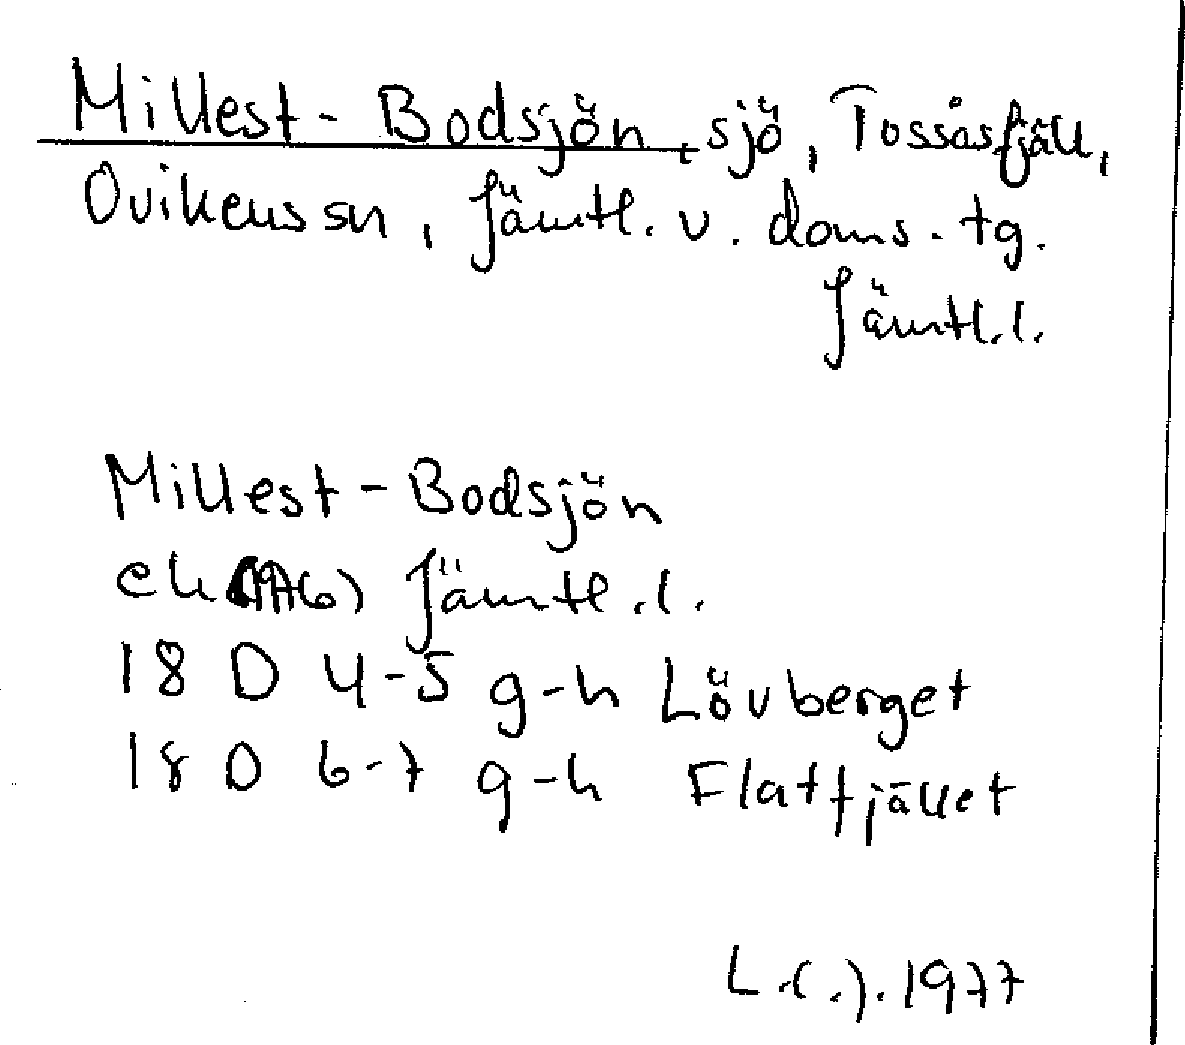 Millest-Bodsjön, sjö, Tossåsfjäll,
Ovikens sn, Jämtl. v. doms. tg.
Jämtl. l.
Millest-Bodsjön
ek (1976) Jämtl. l.
18 D 4-5 g-h Lövberget
18 D 6-7 g-h Flatfjället
L.(.).1977